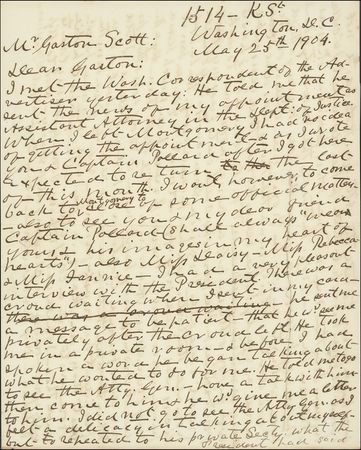 1514 - K St.
Washington, D.C.
May 25th 1904.
Mr. Gaston Scott:
Dear Gaston:
I met the Wash. Correspondent of the Ad-
vertiser yesterday: He told me that he
sent the news of my appointment as
Assistant Attorney in the Dept. of Justice
When I left Montgomery I had no idea
of getting the appointment & as I wrote
you & Captain Pollard after I got here
expected to return the last
of this month. I won't, however, come
back to Montgomery to see of some official matter
- also to see you & my dear friend
Captain Pollard (I shall always "wear
yours & his images in my heart of
hearts") - also Miss Daisy - Miss Rebecca
& Miss Fannie - I had a very pleasant
interview with the President. There was a
crowd waiting when I sent in my card
There was a crowd waiting he sent me
a message to be patient that he wd see me
privately after the crowd left. He took
me in a private room & before I had
spoken a word, he began talking about
what he wanted to do for me. He told me to go
to see the Atty. Gen. - have a talk with him
then come to him & he wd give me a letter
to him. I did not go to see the Atty Gen. as I
felt a delicacy in talking about myself
but repeated to his private Secty what the
President had said